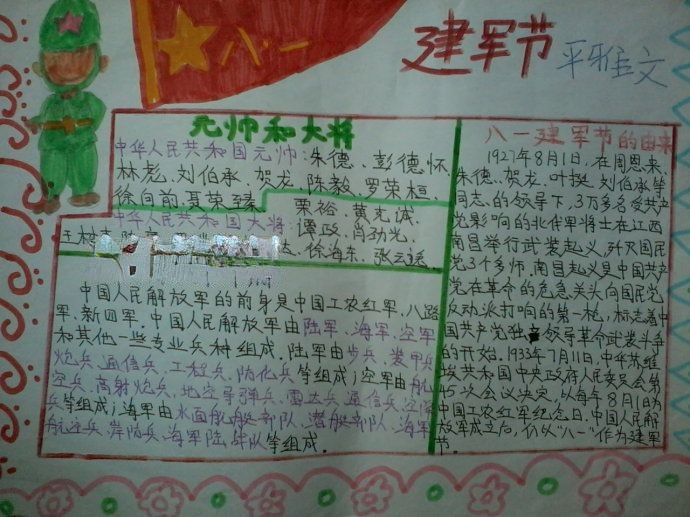 八一
建军节
平雅文
元帅和大将
中华人民共和国元帅:朱德、彭德怀、
林彪、刘伯承、贺龙、陈毅、罗荣桓、
徐向前、聂荣臻。
中华人民共和国大将
粟裕、黄克诚、
谭政、肖劲光、
王树声、
达、徐海东、张云逸。
中国人民解放军的前身是中国工农红军、八路
军、新四军。中国人民解放军由陆军、海军、空军
和其他一些专业兵种组成。陆军由步兵、装甲兵
炮兵、通信兵、工程兵、防化兵等组成;空军由航
空兵、高射炮兵、地空导弹兵、雷达兵、通信兵、空降
兵等组成;海军由水面舰艇部队、潜艇部队、海军
航空兵、岸防兵、海军陆战队等组成。
八一建军节的由来
1927年8月1日,在周恩来、
朱德、贺龙、叶挺、刘伯承等
同志的领导下,3万多名受共产
党影响的北伐军将士在江西
南昌举行武装起义,歼灭国民
党3个多师。南昌起义是中国共产
党在革命的危急关头向国民党
反动派打响的第一枪,标志着中
国共产党独立领导革命武装斗争
的开始。1933年7月11日,中华苏维
埃共和国中央政府人民委员会第
45次会议决定,以每年8月1日为
中国工农红军纪念日。中国人民解
放军成立后,仍以"八一"作为建军
节。